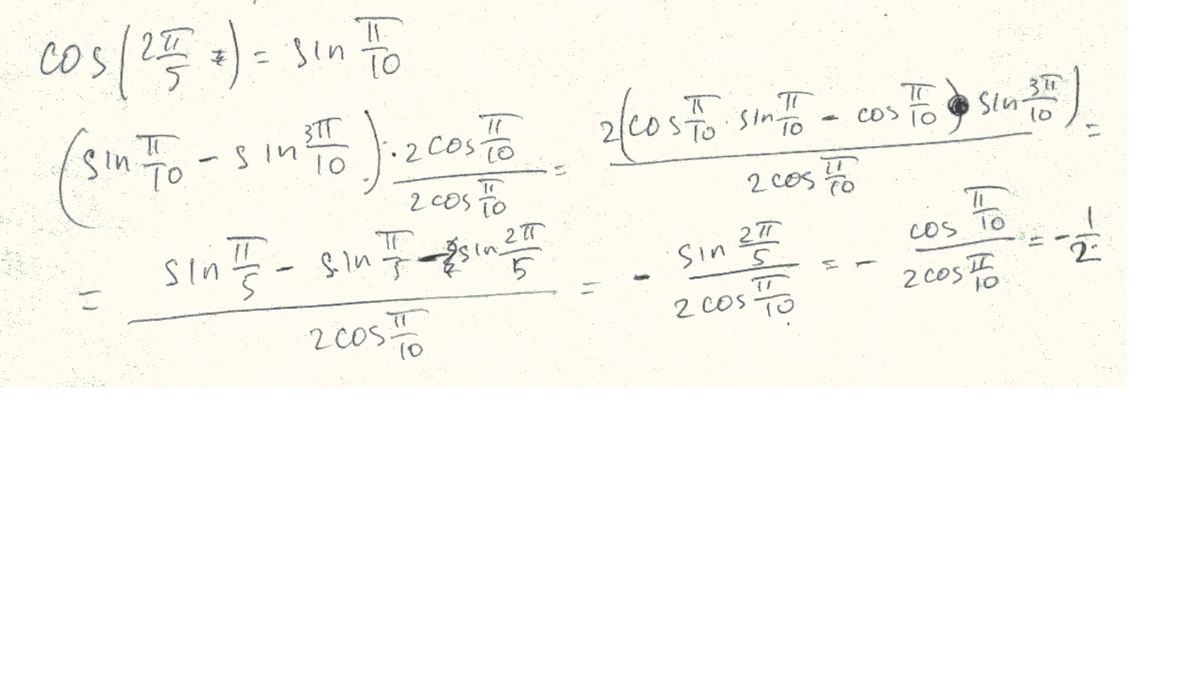 cos(2π/5) = sin π/10
(sin π/10 - sin 3π/10) · 2cos π/10 / 2cos π/10 = 2(cos π/10 · sin π/10 - cos π/10 · sin 3π/10) / 2cos π/10 =
= (sin π/5 - sin π/5 - sin 2π/5) / 2cos π/10 = - sin 2π/5 / 2cos π/10 = - cos π/10 / 2cos π/10 = - 1/2